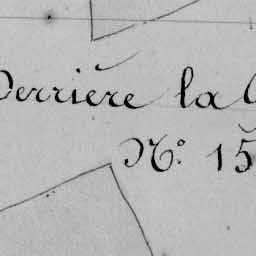 Derrière la
N.º 15